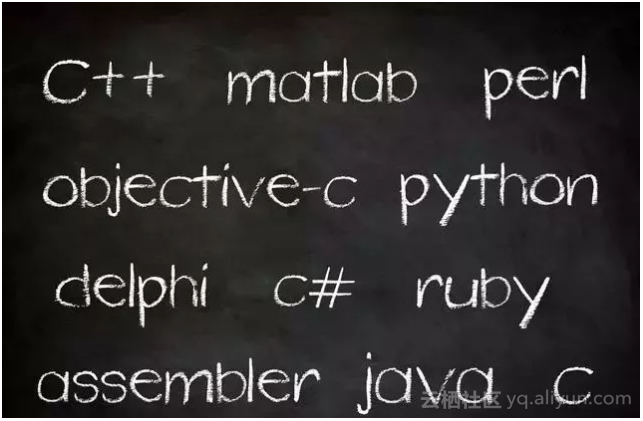 C++ matlab perl
objective-c python
delphi c# ruby
assembler java c
云栖社区 yq.aliyun.com